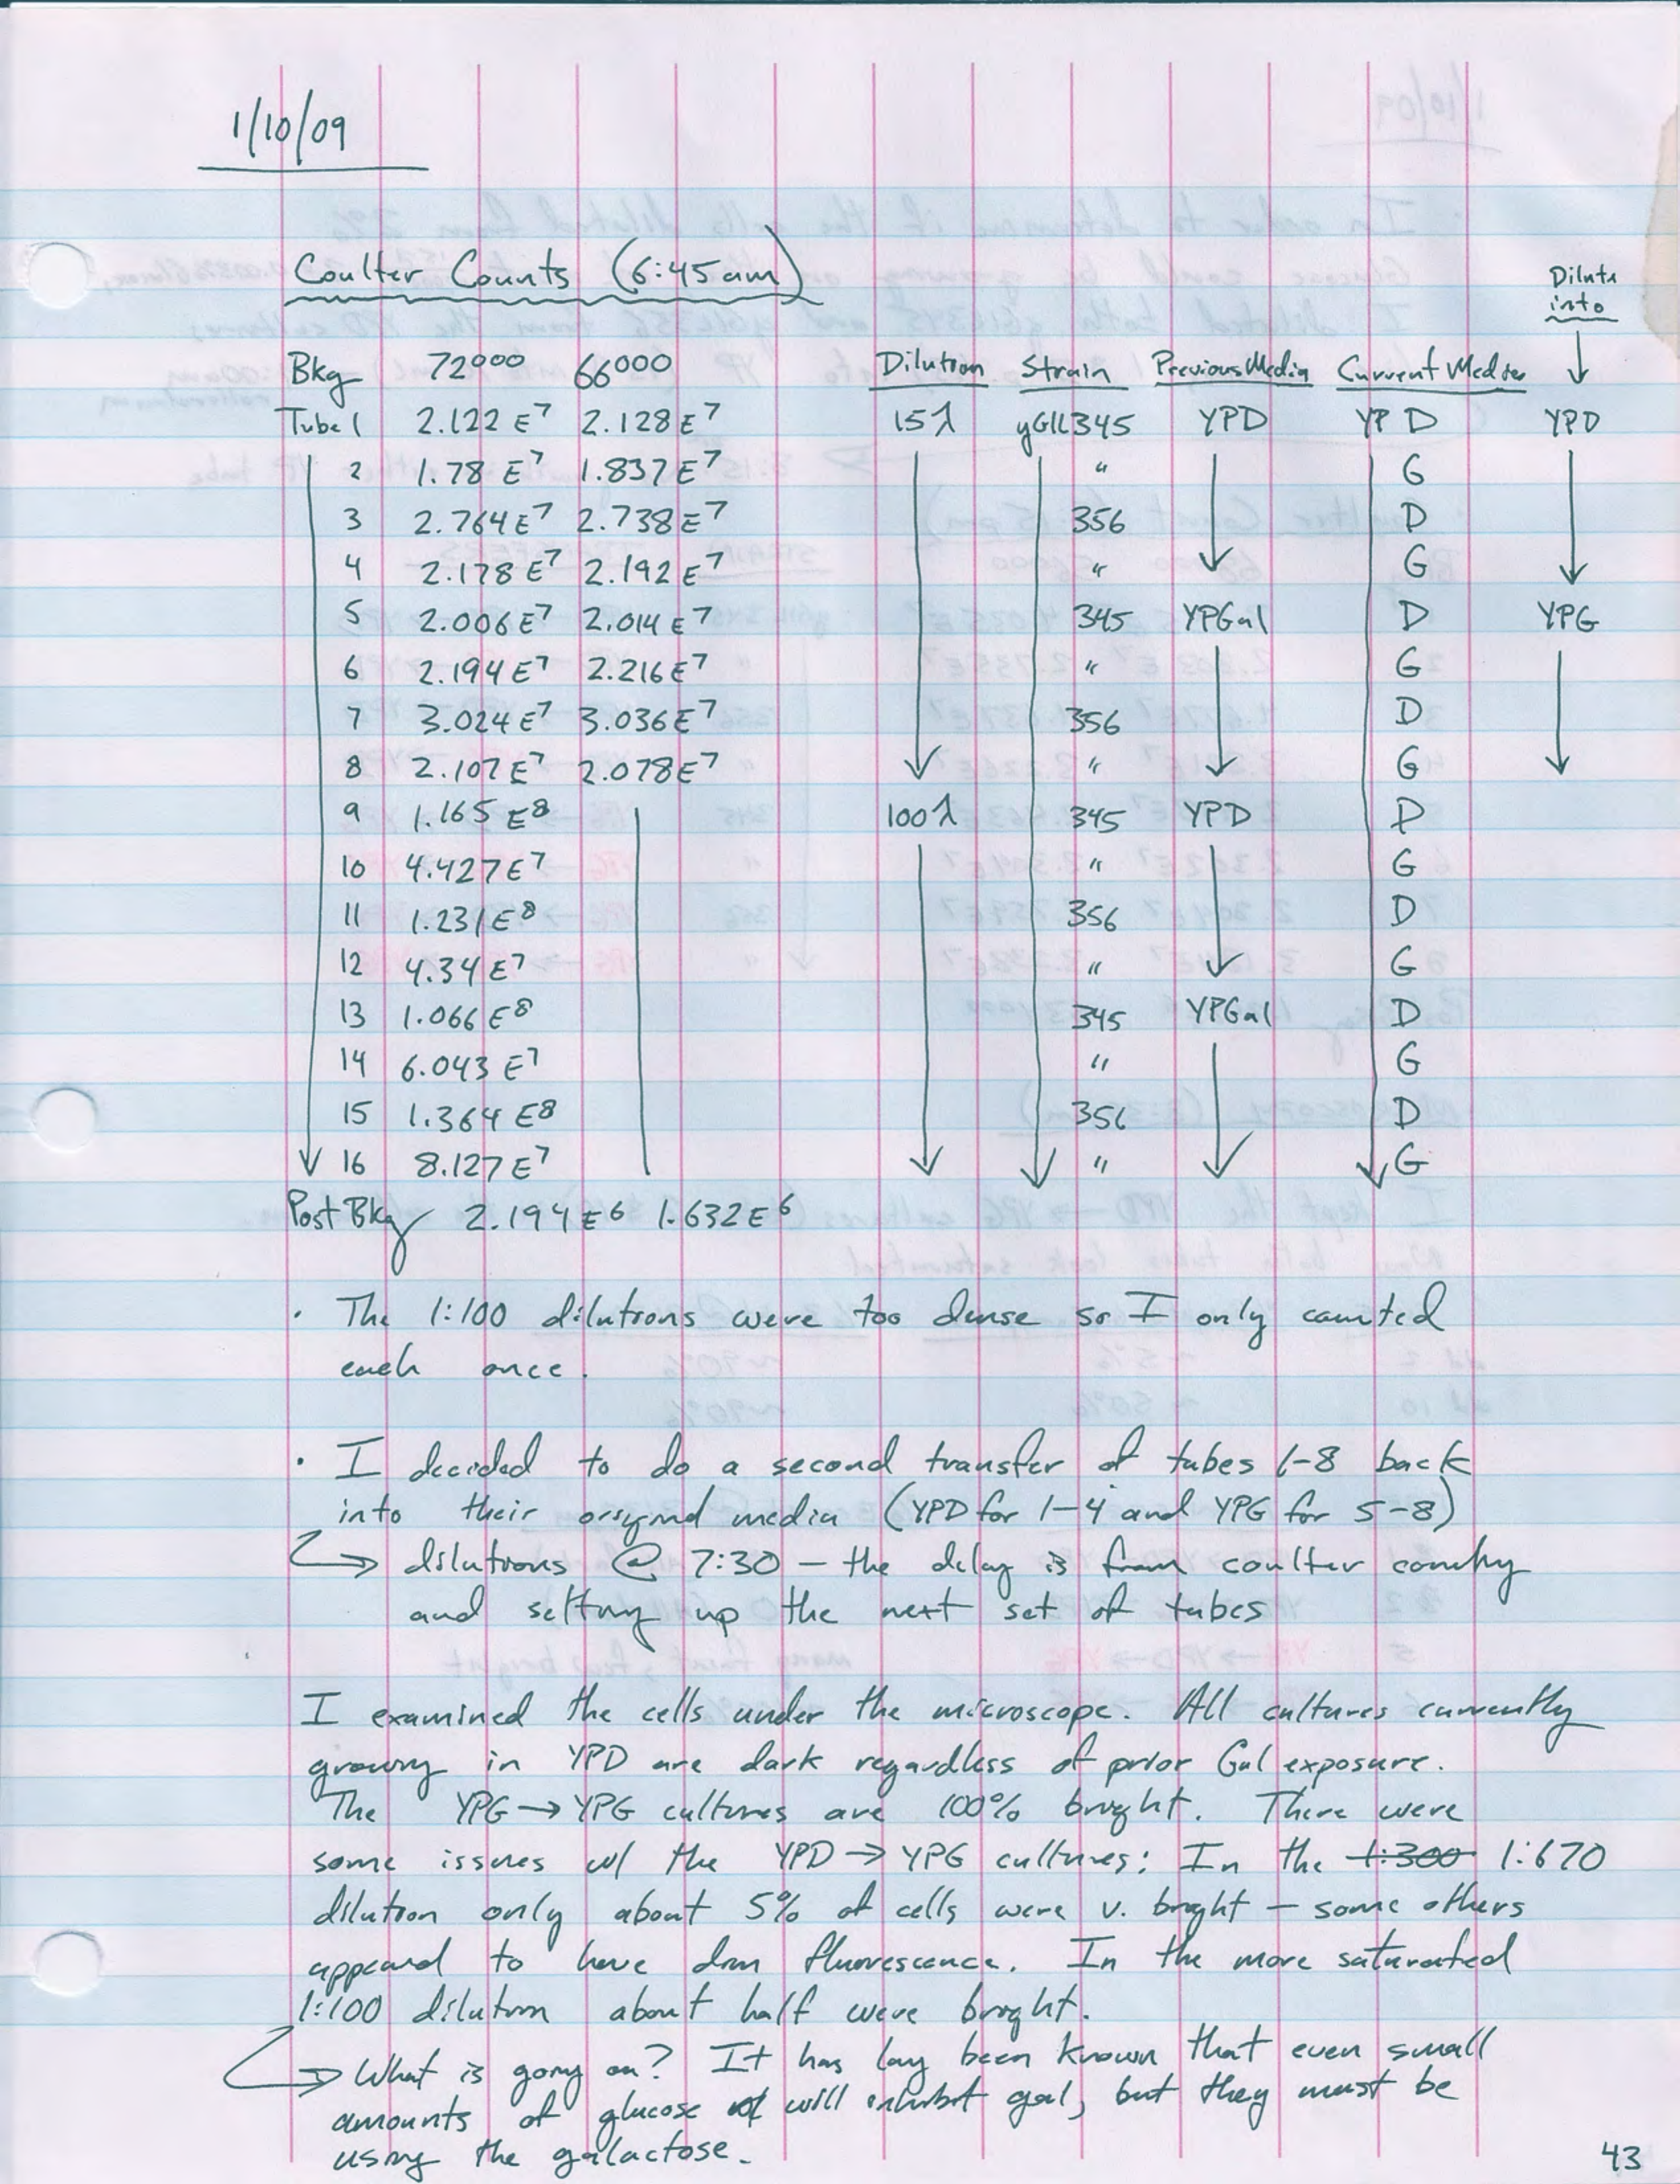 1/10/09
Coulter Counts (6:45am)
Dilute
into
Bkg 72000 66000 Dilution Strain Previous Media Current Media
Tube 1 2.122 E7 2.128 E7 15λ yGIL345 YPD YP D YPD
2 1.78 E7 1.837 E7 " G
3 2.764 E7 2.738 E7 356 D
4 2.178 E7 2.192 E7 " G
5 2.006 E7 2.014 E7 345 YPGal D YPG
6 2.194 E7 2.216 E7 " G
7 3.024 E7 3.036 E7 356 D
8 2.107 E7 2.078 E7 " G
9 1.165 E8 100λ 345 YPD D
10 4.427 E7 " G
11 1.231 E8 356 D
12 4.34 E7 " G
13 1.066 E8 345 YPGal D
14 6.043 E7 " G
15 1.364 E8 356 D
16 8.127 E7 " G
Post Bkg 2.194 E6 1.632 E6
· The 1:100 dilutions were too dense so I only counted
each once.
· I decided to do a second transfer of tubes 1-8 back
into their original media (YPD for 1-4 and YPG for 5-8)
→ dilutions @ 7:30 – the delay is from coulter counting
and setting up the next set of tubes
I examined the cells under the microscope. All cultures currently
growing in YPD are dark regardless of prior Gal exposure.
The YPG → YPG cultures are 100% bright. There were
some issues w/ the YPD → YPG cultures: In the 1:300 1:670
dilution only about 5% of cells were v. bright – some others
appeared to have dim fluorescence. In the more saturated
1:100 dilution about half were bright.
→ What is going on? It has long been known that even small
amounts of glucose will inhibit gal, but they must be
using the galactose.
43